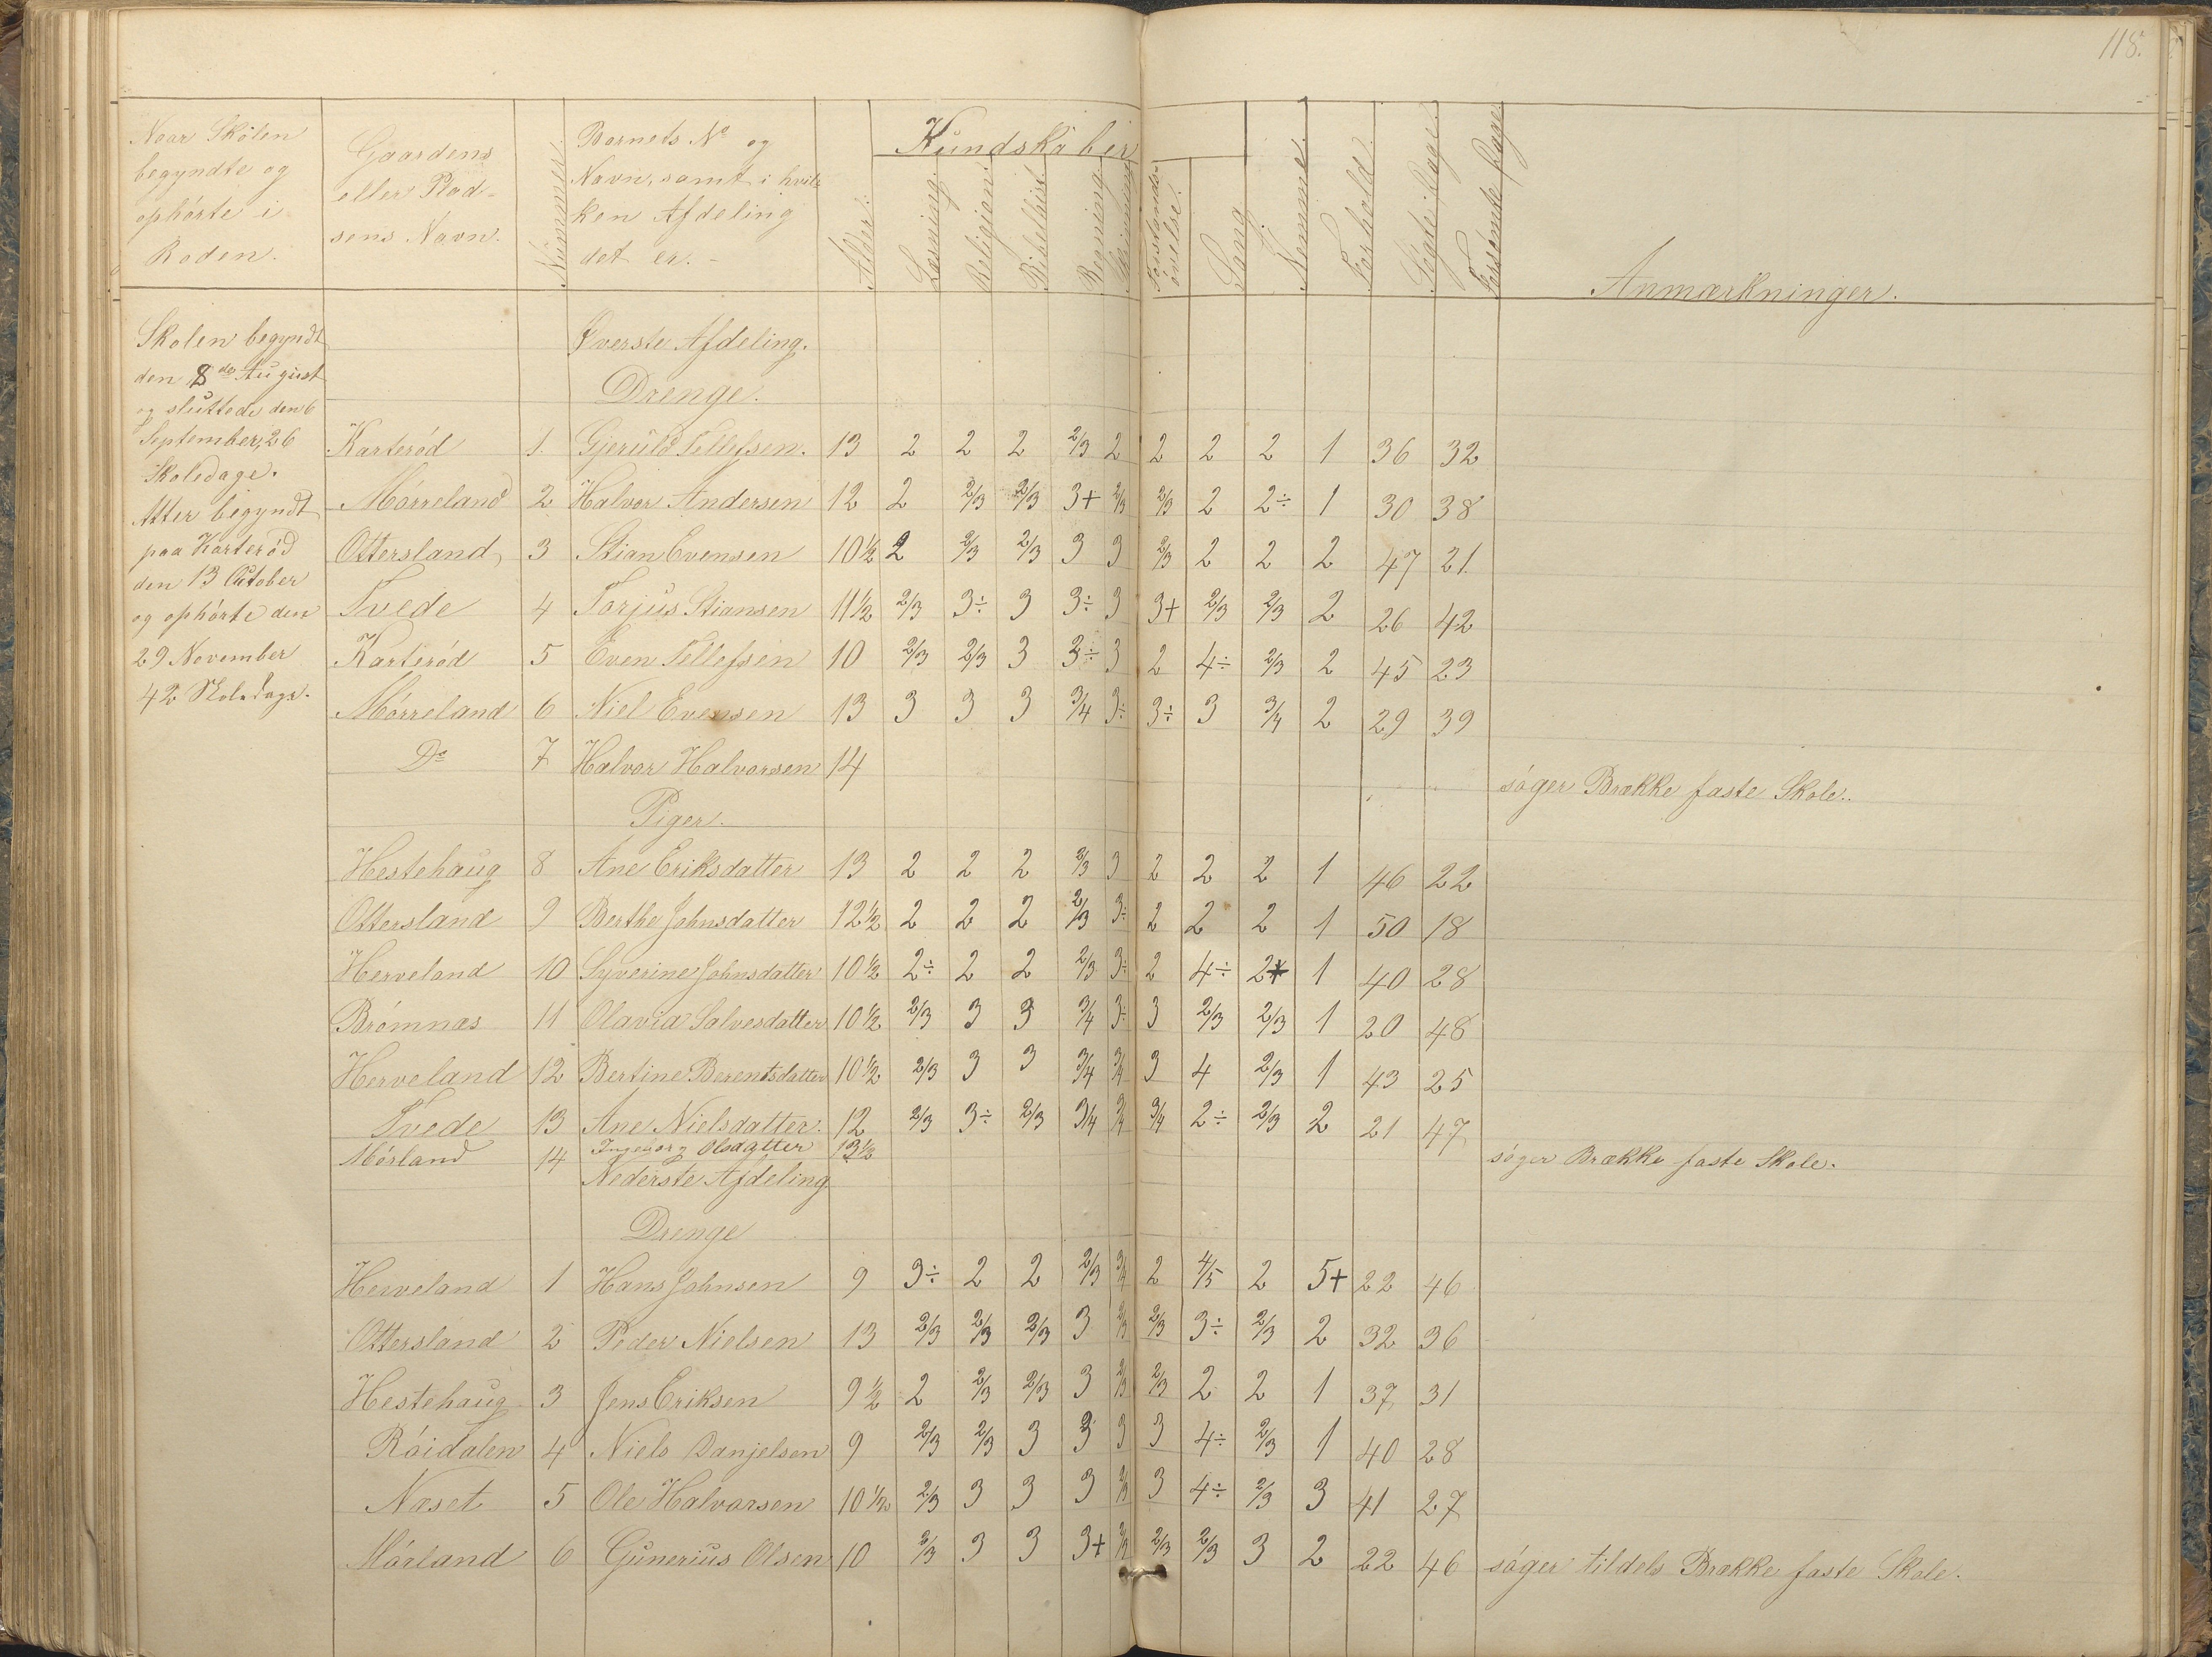 118.
Naar Skolen
begyndte og
ophörte i
Roden.
Gaardens
eller Plad-
sens Navn.
Nummer.
Barnets No og
Navn, samt i hvil-
ken Afdeling
det er. -
Alder.
Kundskaber
Læsning.
Religion.
Bibelhist.
Regning.
Skrivning
Forstands-
övelse.
Sang.
Nemme.
Forhold.
Sögte Dage.
Forsömte Dage.
Anmærkninger.
Skolen begyndt
den 8de August
og sluttede den 6
September, 26
Skoledage.
Atter begyndt
paa Karteröd
den 13 October
og ophörte den
29 November
42 Skoledage.
Øverste Afdeling.
Drenge.
Karteröd 1. Gjeruld Tellefsen. 13 2 2 2 2/3 2 2 2 2 1 36 32
Mörreland 2 Halvor Andersen 12 2 2/3 2/3 3+ 2/3 2/3 2 2÷ 1 30 38
Ottersland 3 Stian Evensen 10½ 2 2/3 2/3 3 3 2/3 2 2 2 47 21
Tvede 4 Torjus Stiansen 11½ 2/3 3÷ 3 3÷ 3 3+ 2/3 2/3 2 26 42
Karteröd 5 Even Tellefsen 10 2/3 2/3 3 3÷ 3 2 4÷ 2/3 2 45 23
Mörreland 6 Niel Evensen 13 3 3 3 3/4 3÷ 3÷ 3 3/4 2 29 39
Do 7 Halvor Halvorsen 14 söger Brække faste Skole..
Piger.
Hestehaug 8 Ane Eriksdatter 13 2 2 2 2/3 3 2 2 2 1 46 22
Ottersland 9 Berthe Johnsdatter 12½ 2 2 2 2/3 3÷ 2 2 2 1 50 18
Herveland 10 Syverine Johnsdatter 10½ 2÷ 2 2 2/3 3÷ 2 4÷ 2+ 1 40 28
Brömnæs 11 Olavia Salvesdatter 10½ 2/3 3 3 3/4 3÷ 3 2/3 2/3 1 20 48
Herveland 12 Bertine Berentsdatter 10½ 2/3 3 3 3/4 3/4 3 4 2/3 1 43 25
Tvede 13 Ane Nielsdatter. 12 2/3 3÷ 2/3 3/4 3/4 3/4 2÷ 2/3 2 21 47
Mörland 14 Ingeborg Olsdatter 13½ söger Brække faste Skole.
Nederste Afdeling
Drenge
Herveland 1 Hans Johnsen 9 3÷ 2 2 2/3 3/4 2 4/5 2 5+ 22 46
Ottersland 2 Peder Nielsen 13 2/3 2/3 2/3 3 2/3 2/3 3÷ 2/3 2 32 36
Hestehaug 3 Jens Eriksen 9½ 2 2/3 2/3 3 2/3 2/3 2 2 1 37 31
Röidalen 4 Niels Danjelsen 9 2/3 2/3 3 3 3 3 4÷ 2/3 1 40 28
Næset 5 Ole Halvorsen 10½ 2/3 3 3 3 2/3 3 4÷ 2/3 3 41 27
Mörland 6 Gunerius Olsen 10 2/3 3 3 3+ 2/3 2/3 2/3 3 2 22 46 söger tildels Brække faste Skole.